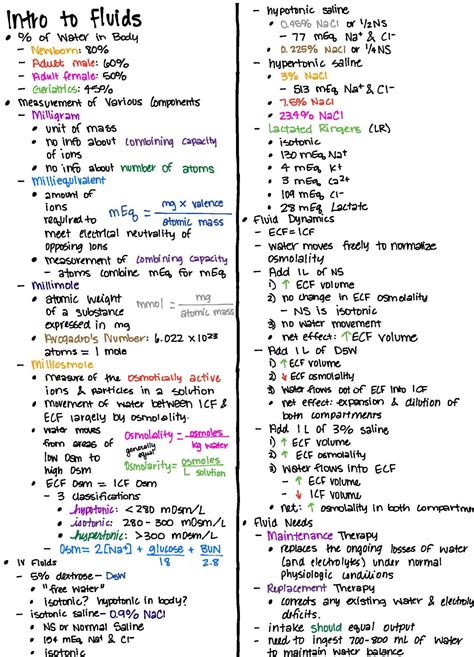 Intro to Fluids
• % of Water in Body
– Newborn: 80%
– Adult male: 60%
– Adult female: 50%
– Geriatrics: 45%
• Measurement of Various Components
– Milligram
• unit of mass
• no info about combining capacity
of ions
• no info about number of atoms
– Milliequivalent
• amount of
ions
required to
meet electrical neutrality of
opposing ions
mEq = mg x valence
atomic mass
• measurement of combining capacity
– atoms combine mEq for mEq
– Millimole
• atomic weight
of a substance
expressed in mg
mmol = mg
atomic mass
• Avogadro's Number: 6.022 x 10²³
atoms = 1 mole
– Milliosmole
• measure of the osmotically active
ions & particles in a solution
• movement of water between ICF &
ECF largely by osmolality.
• water moves
from areas of
low Osm to
high Osm
Osmolality = osmoles
kg water
generally
equal
Osmolarity = osmoles
L solution
• ECF Osm = ICF Osm
– 3 classifications
• hypotonic: < 280 mOsm/L
• isotonic: 280 - 300 mOsm/L
• hypertonic: > 300 mOsm/L
– Osm = 2[Na+] + glucose + BUN
18 2.8
• IV Fluids
– 5% dextrose – D5W
• "free water"
• isotonic? hypotonic in body?
– isotonic saline – 0.9% NaCl
• NS or Normal Saline
• 154 mEq Na+ & Cl-
• isotonic
– hypotonic saline
• 0.45% NaCl or 1/2NS
– 77 mEq Na+ & Cl-
• 0.225% NaCl or 1/4NS
– hypertonic saline
• 3% NaCl
– 513 mEq Na+ & Cl-
• 7.5% NaCl
• 23.4% NaCl
– Lactated Ringers (LR)
• isotonic
• 130 mEq Na+
• 4 mEq K+
• 3 mEq Ca2+
• 109 mEq Cl-
• 28 mEq Lactate
• Fluid Dynamics
– ECF = ICF
– water moves freely to normalize
osmolality
– Add 1L of NS
1) ↑ ECF volume
2) no change in ECF osmolality
– NS is isotonic
3) no water movement
• net effect: ↑ ECF volume
– Add 1L of D5W
1) ↑ ECF volume
2) ↓ ECF osmolality
3) Water flows out of ECF into ICF
• net effect: expansion & dilution of
both compartments
– Add 1L of 3% saline
1) ↑ ECF volume
2) ↑ ECF osmolality
3) Water flows into ECF
– ↑ ECF volume
– ↓ ICF volume
• net: ↑ osmolality in both compartment
• Fluid Needs
– Maintenance Therapy
• replaces the ongoing losses of water
(and electrolytes) under normal
physiologic conditions
– Replacement Therapy
• corrects any existing water & electroly
deficits.
– intake should equal output
– need to ingest 700-800 mL of water
to maintain water balance